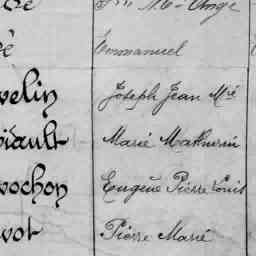 Emmanuel
velin Joseph Jean Mie
Marie Mathurin
vochon Eugène Pierre Louis
vot Pierre Marie